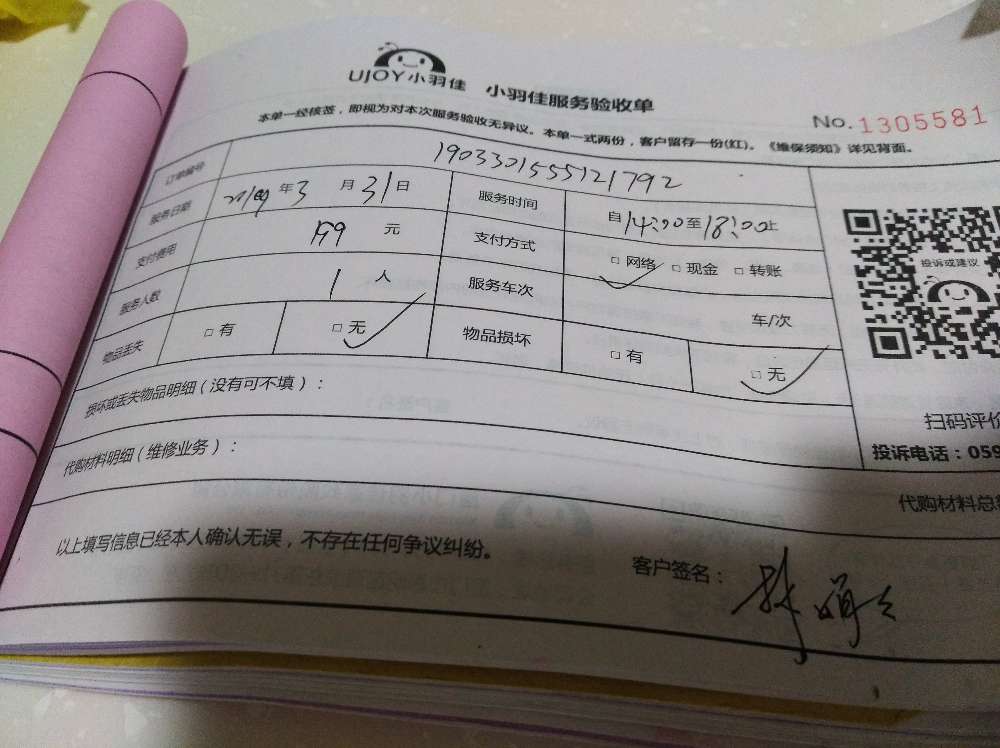 UJOY小羽佳 小羽佳服务验收单
No. 1305581
本单一经核签，即视为对本次服务验收无异议。本单一式两份，客户留存一份(红)。《维保须知》详见背面。
订单编号 1903301555121792
服务日期 2019年3月31日 服务时间 自14:00至18:00止
支付费用 199元 支付方式 □网络 □现金 □转账
服务人数 1人 服务车次 车/次
物品丢失 □有 □无 物品损坏 □有 □无
投诉或建议
扫码评价
投诉电话：059
损坏或丢失物品明细（没有可不填）：
代购材料明细（维修业务）：
代购材料总
以上填写信息已经本人确认无误，不存在任何争议纠纷。
客户签名：